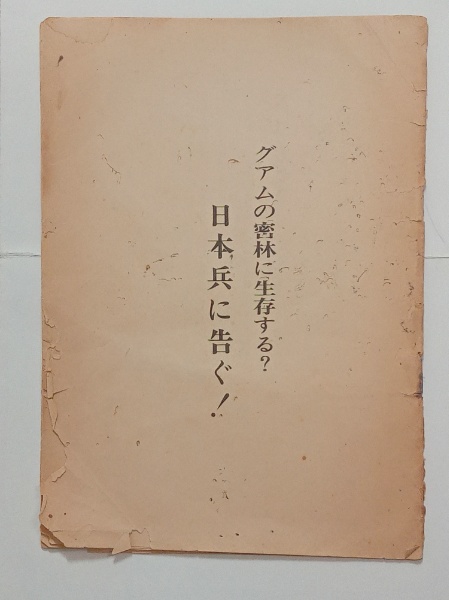 グアムの密林に生存する?
日本兵に告ぐ!